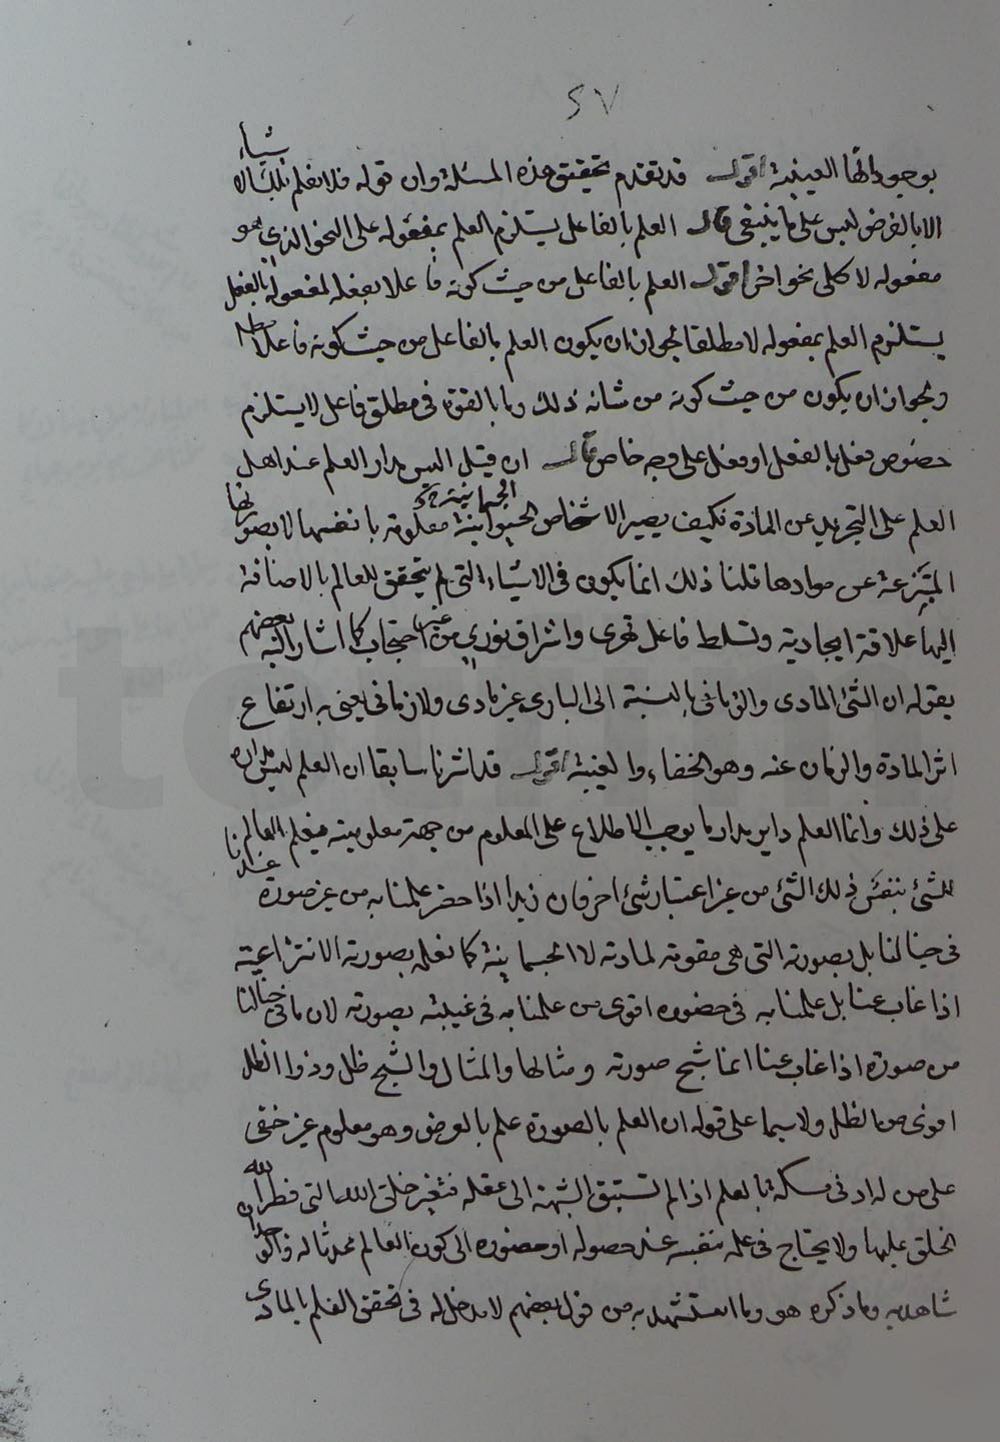 ٤٧
بوجوداتها العينية اقول قد تقدم تحقيق هذه المسئلة وان قوله فلا نعلم تلك الاشياء
الا بالفرض ليس على ما ينبغي قال العلم بالفاعل يستلزم العلم بمفعوله على النحو الذي هو
مفعوله لا كلى نحو اخر اقول العلم بالفاعل من حيث كونه فاعلا بفعله لمفعوله بالفعل
يستلزم العلم بمفعوله لا مطلقا لجواز ان يكون العلم بالفاعل من حيث كونه فاعلا مطلقا
ولجواز ان يكون من حيث كونه من شانه ذلك وما بالقوة فى مطلق فاعل لا يستلزم
خصوص فعل بالفعل او فعل على وجه خاص قال ان قيل اليس مدار العلم عند اهل
العلم على التجريد عن المادة فكيف يصير الاشخاص الجسمانية الحيوانية معلومة بانفسها لا بصورتها
المنتزعة عن موادها قلنا ذلك انما يكون فى الاشياء التى لم يتحقق للعالم بالاضافة
اليها علاقة ايجادية وتسلط فاعل قهرى واشراق نوري من غير احتجاب كما اشار اليه بعضهم
بقوله ان الشئ المادى والزمانى بالنسبة الى البارى غير مادى ولا زمانى يعنى به ارتفاع
اثر المادة والزمان عنه وهو الخفاء والغيبة اقول قد اشرنا سابقا ان العلم ليس مداره
على ذلك وانما العلم داير مدار ما يوجب الاطلاع على المعلوم من جهة معلوميته فيعلم العالم
للشئ بنفس ذلك الشئ من غير اعتبار شئ اخر فان زيدا اذا حضر عندنا علمنا به من غير صورة
فى خيالنا بل بصورته التى هى مقومة لمادته لا الجسمانية كما نعلمه بصورته الانتزاعية
اذا غاب عنا بل علمنا به فى حضوره اقوى من علمنا به فى غيبته بصورته لان ما فى خيالنا
من صورة اذا غاب عنا انما شبح صورته ومثالها والمثال والشبح ظل وذو الظل
اقوى من الظل ولا سيما على قوله ان العلم بالصورة علم بالعرض وهو معلوم غير خفى
على من له ادنى مسكة بالعلم اذا لم تستبق الشبهة الى عقله فتغير خلق الله التى فطر الله
الخلق عليها ولا يحتاج فى علمه بنفسه عند حصوله او حضوره الى كون العالم محدثا له والوجدان
شاهد به وما ذكره هو وما استشهد به من قول بعضهم لا مدخل له فى تحقق العلم بالمادى